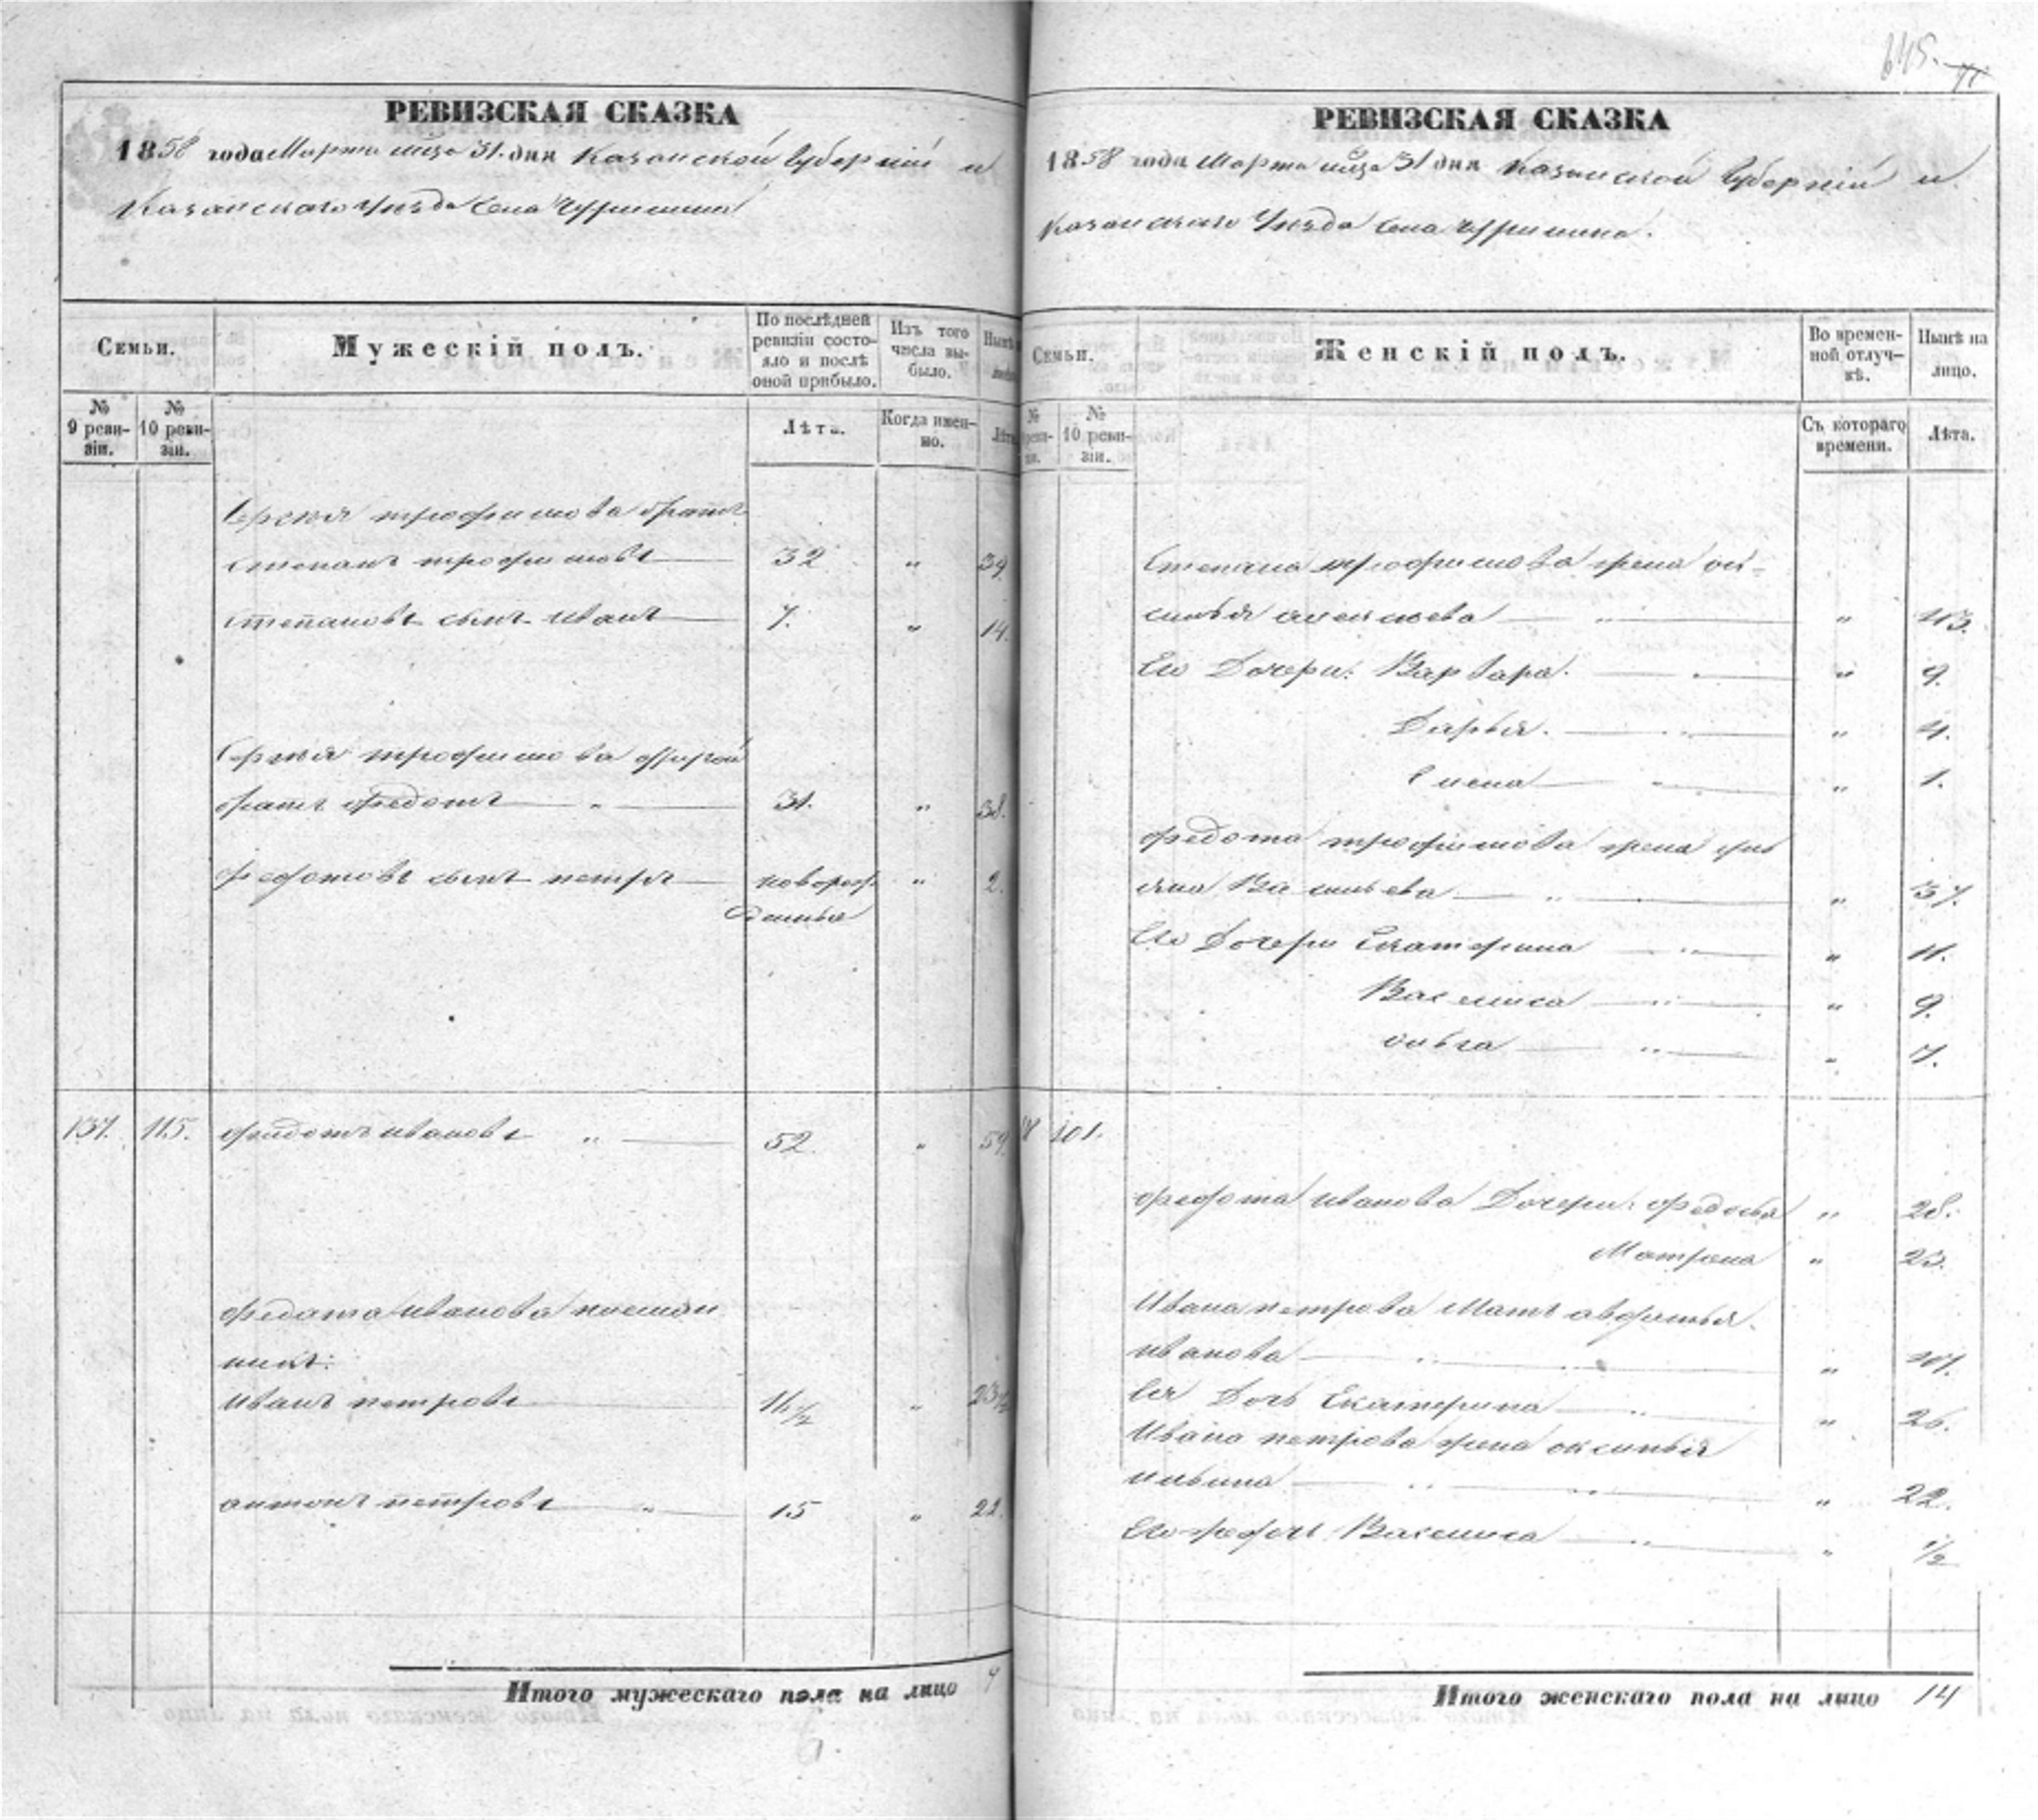 645.
РЕВИЗСКАЯ СКАЗКА
1858 года Марта м̃ца 31. дня Казанской Губерніи и
Казанскаго Уѣзда Села
Семьи.
Мужескій полъ.
По послѣдней ревизіи состояло и послѣ оной прибыло.
Изъ того числа выбыло.
Нынѣ
№ 9 ревизіи.
№ 10 ревизіи.
Лѣта.
Когда именно.
Лѣта
Сергѣя трофимова братъ
степанъ трофимовъ 32 " 39
степановъ сынъ иванъ 7. " 14.
Сергѣя трофимова другой
братъ федотъ " 31. " 38.
федотовъ сынъ петръ новорож " 2.
денный
137. 115. федотъ ивановъ " 52 " 59
федота иванова племян
никъ:
иванъ петровъ 16½ " 23½
антонъ петровъ " 15 " 22.
Итого мужескаго пола на лицо
РЕВИЗСКАЯ СКАЗКА
1858 года Марта м̃ца 31 дня Казанской Губерніи и
Казанскаго Уѣзда Села
Семьи.
Женскій полъ.
Во временной отлучкѣ.
Нынѣ на лицо.
№
10 ревизіи.
Съ котораго времени.
Лѣта.
Степана трофимова жена
алексѣева " " 43.
Его Дочери: Варвара. " " 9.
Дарья. " " 4.
Елена " " 1.
федота трофимова жена уль
яна Васильева " " 37.
Его Дочери Екатерина " " 11.
Василиса " " 9.
ольга " " 7.
101.
федота иванова Дочери: федосья " 28.
Матрена " 23.
Ивана петрова Мать авдотья
иванова " " "
Ея Дочь Екатерина " " 26.
Ивана петрова жена оксинья
ильина " " " 22.
Его дочь Василиса " " ½
Итого женскаго пола на лицо 14